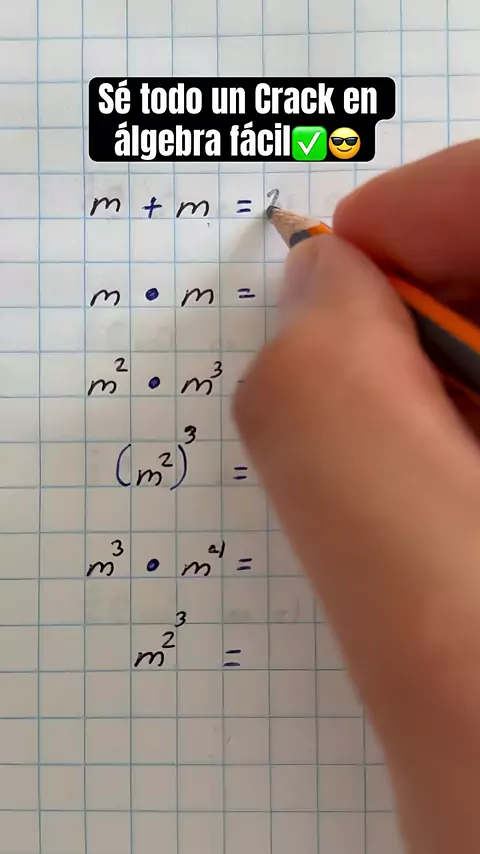 Sé todo un Crack en
álgebra fácil✅😎
m + m = 2
m • m =
m² • m³
(m²)³ =
m³ • m⁻¹ =
m^2^3 =